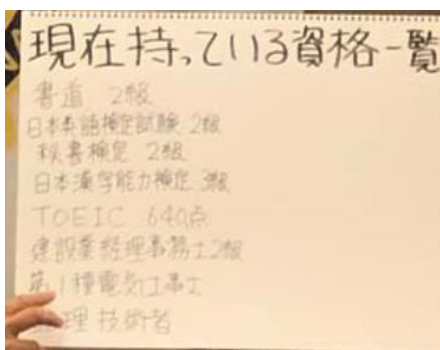 現在持っている資格一覧
書道 2級
日本英語検定試験 2級
秘書検定 2級
日本漢字能力検定 3級
TOEIC 640点
建設業経理事務士2級
第1種電気工事士
理技術者